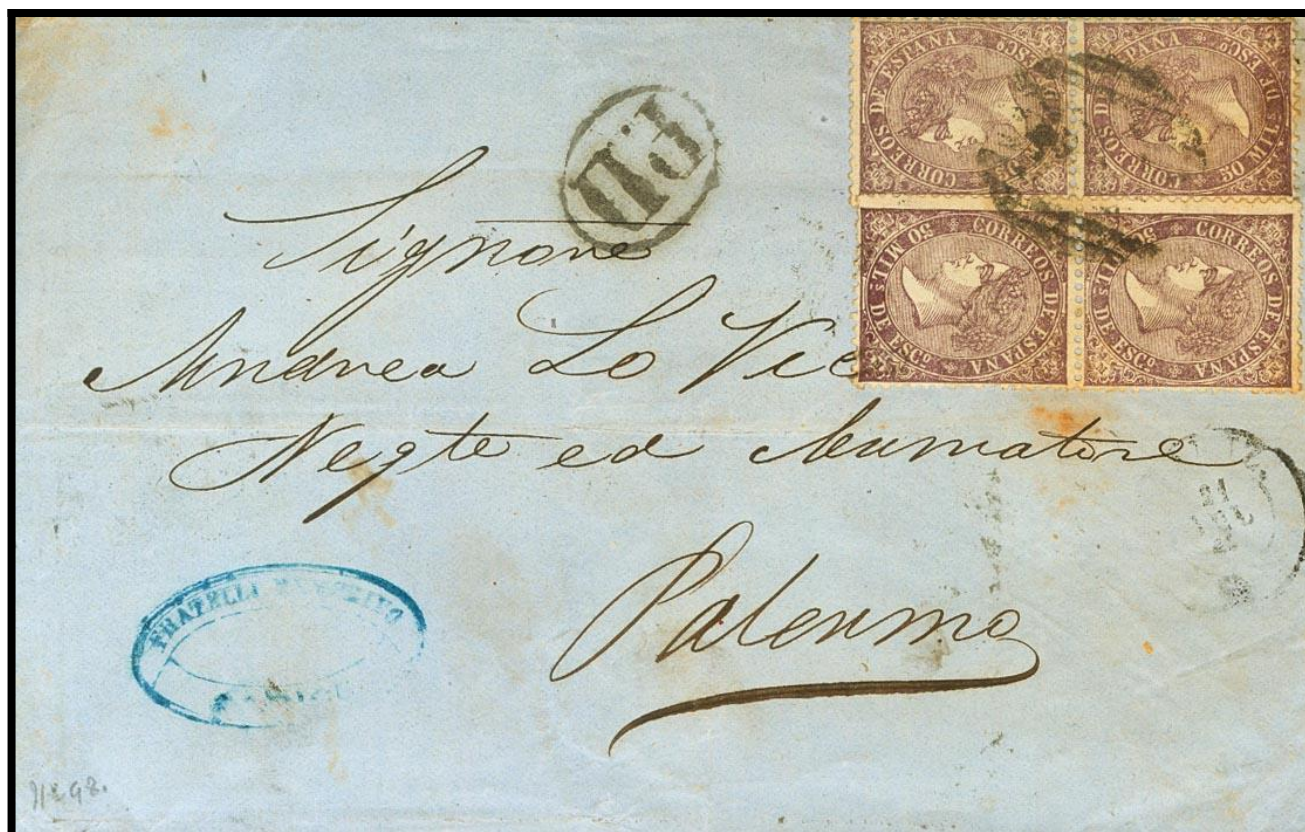 PD
CORREOS DE ESPAÑA
50 MIL.S DE ESC.O
CORREOS DE ESPAÑA
50 MIL.S DE ESC.O
CORREOS DE ESPAÑA
50 MIL.S DE ESC.O
CORREOS DE ESPAÑA
50 MIL.S DE ESC.O
Signore
Andrea Lo Vic
Negte ed
Palermo
21
FRATELLI